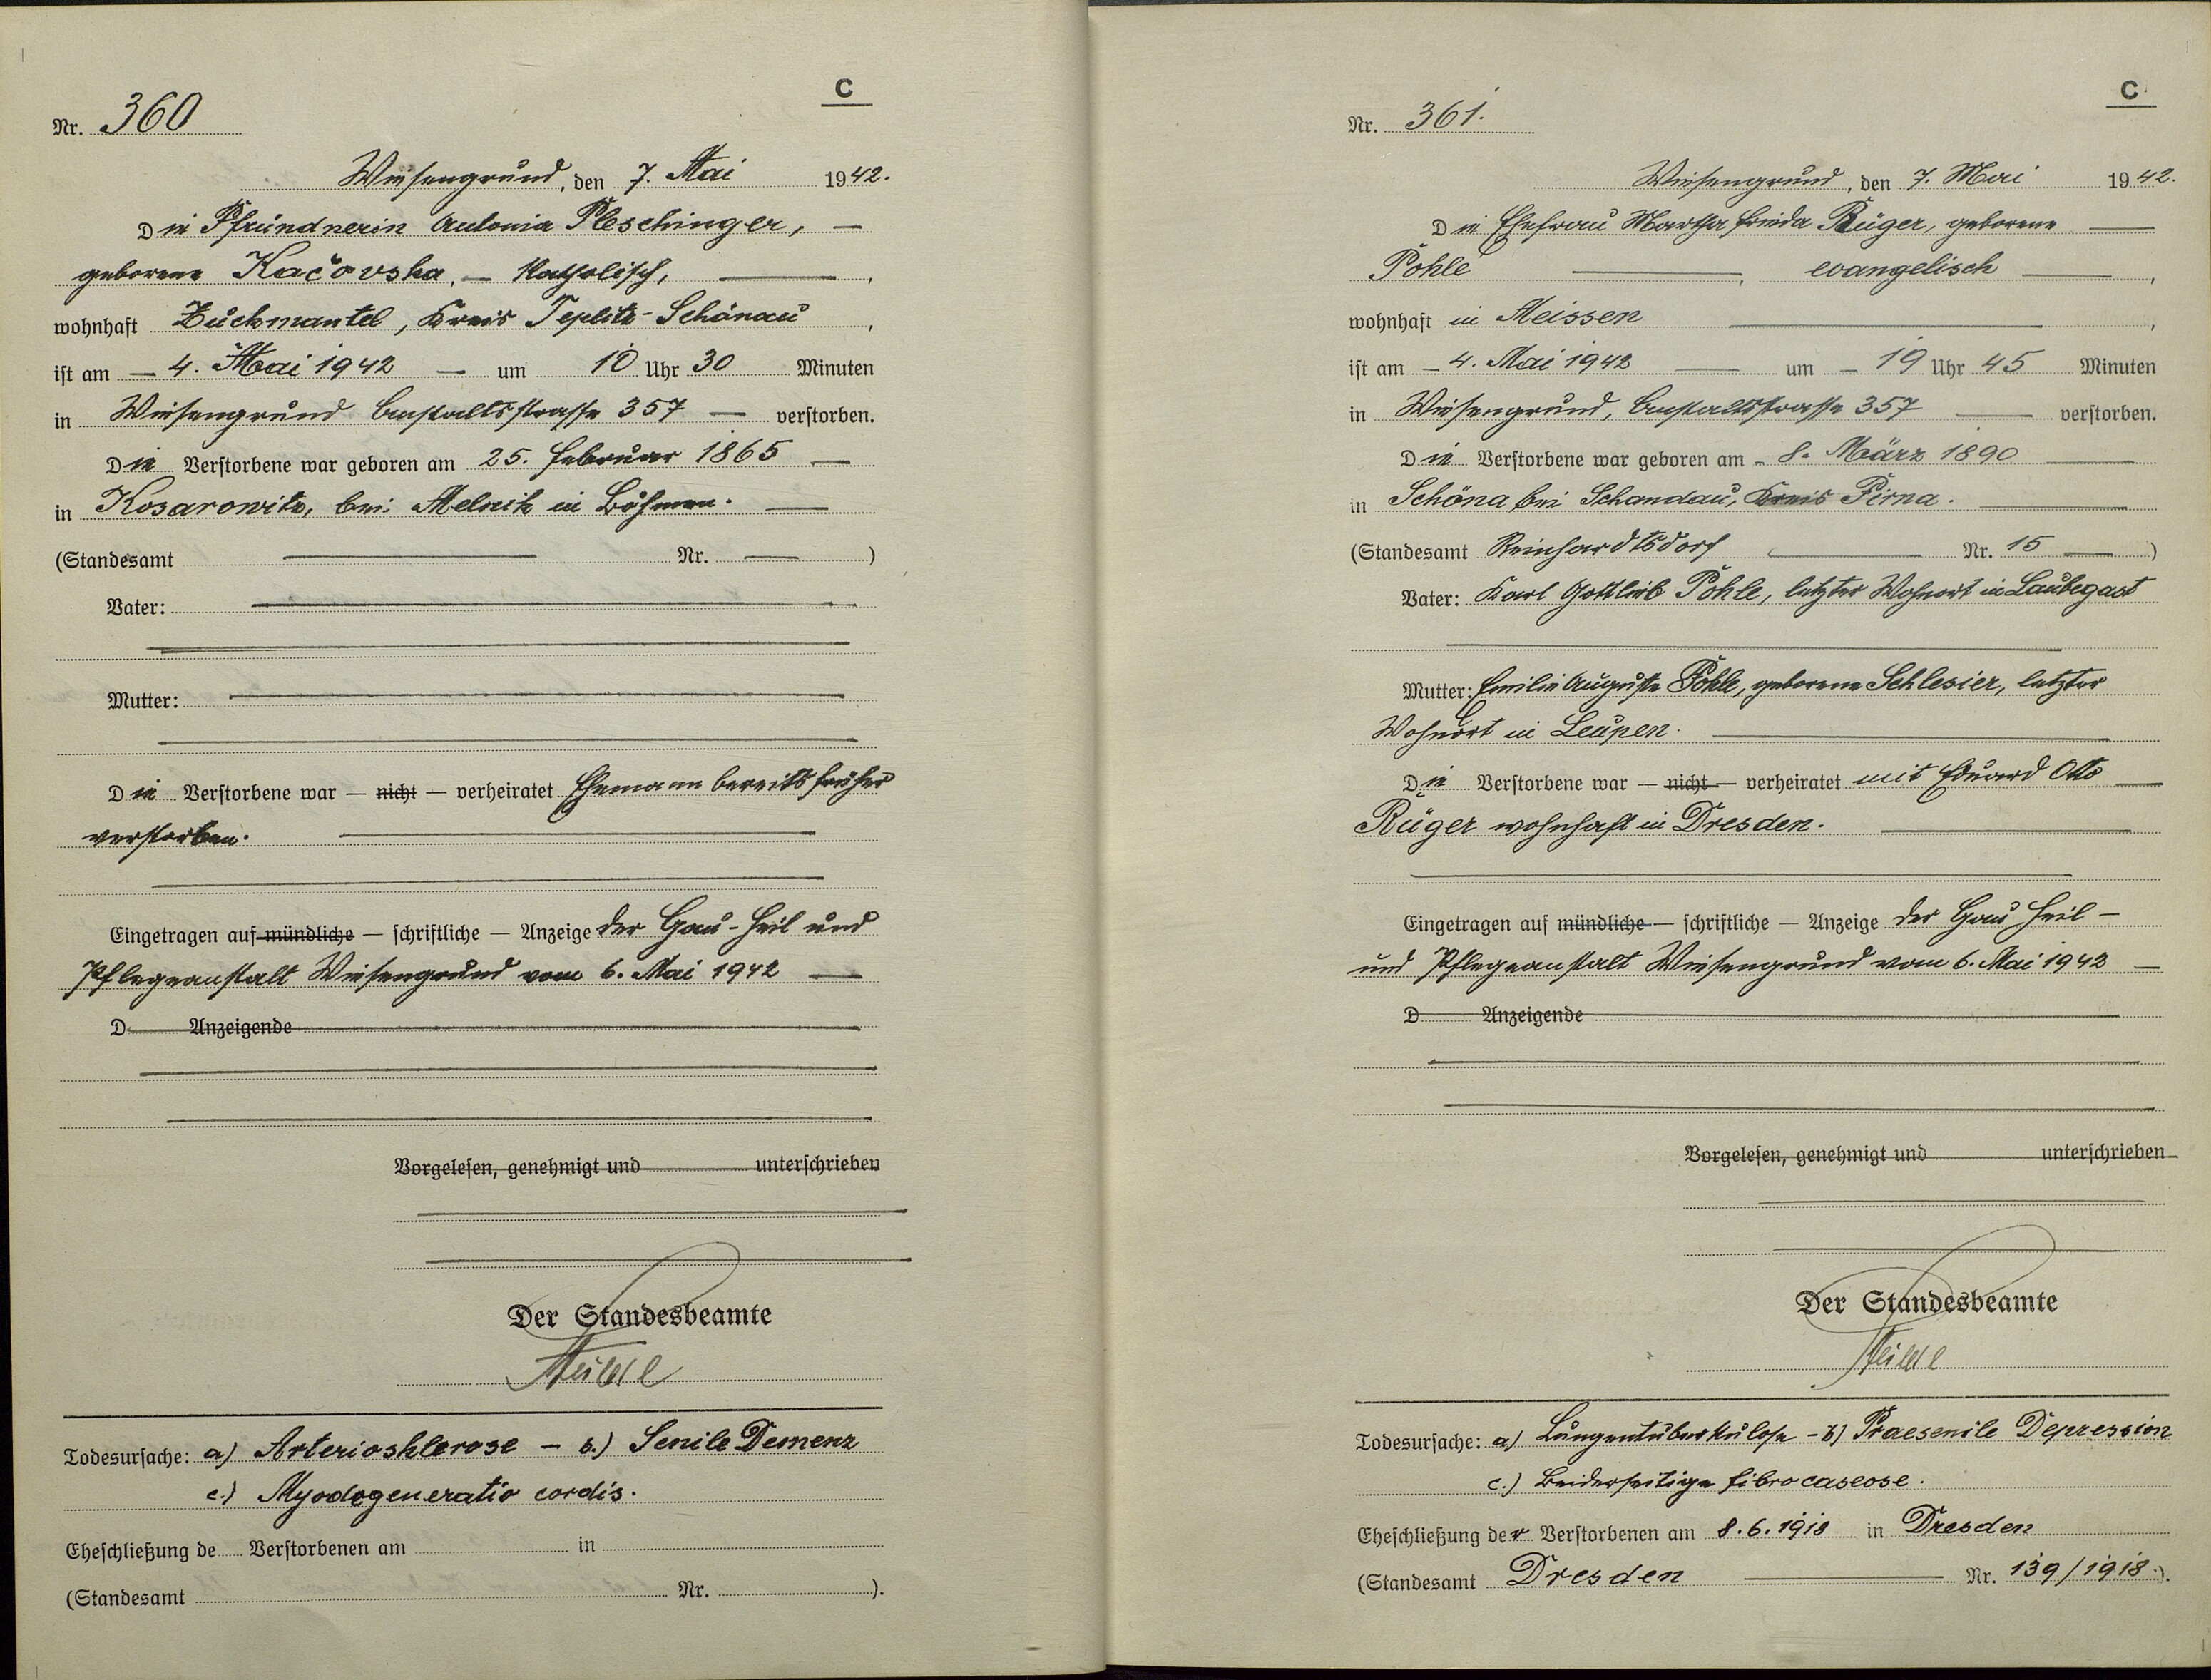 C
Nr. 360
Wiesengrund, den 7. Mai 1942.
Die Pfründnerin Antonia Pleschinger, —
geborene Kačovska, — katholisch, —,
wohnhaft Zuckmantel, Kreis Teplitz-Schönau,
ist am — 4. Mai 1942 — um 10 Uhr 30 Minuten
in Wiesengrund Anstaltsstrasse 357 — verstorben.
Die Verstorbene war geboren am 25. Februar 1865 —
in Kosarowitz, bei Melnik in Böhmen. —
(Standesamt — Nr. — )
Vater: —
Mutter: —
Die Verstorbene war — nicht — verheiratet Ehemann bereits früher
verstorben. —
Eingetragen auf mündliche — schriftliche — Anzeige der Gau-Heil und
Pflegeanstalt Wiesengrund vom 6. Mai 1942 —
D Anzeigende
Vorgelesen, genehmigt und unterschrieben
Der Standesbeamte
Todesursache: a) Arterioshlerose — b.) Senile Demenz
c.) Myodegeneratio cordis.
Eheschließung de Verstorbenen am in
(Standesamt Nr. ).
C
Nr. 361.
Wiesengrund, den 7. Mai 1942.
Die Ehefrau Martha Frieda Rüger, geborene —
Pohle —, evangelisch —,
wohnhaft in Meissen —,
ist am — 4. Mai 1942 — um — 19 Uhr 45 Minuten
in Wiesengrund, Anstaltsstrasse 357 — verstorben.
Die Verstorbene war geboren am - 8. März 1890 —
in Schöna bei Schandau, Kreis Pirna. —
(Standesamt Reinhardtsdorf — Nr. 15 — )
Vater: Karl Gottlieb Pohle, letzter Wohnort in Laubegast
Mutter: Emilie Auguste Pohle, geborene Schlesier, letzter
Wohnort in Leupen. —
Die Verstorbene war — nicht — verheiratet mit Eduard Otto —
Rüger wohnhaft in Dresden. —
Eingetragen auf mündliche — schriftliche — Anzeige der Gau Heil -
und Pflegeanstalt Wiesengrund vom 6. Mai 1942 —
D Anzeigende
Vorgelesen, genehmigt und unterschrieben
Der Standesbeamte
Todesursache: a) Lungentuberkulose - b) Praesenile Depression
c.) Beiderseitige fibrocaseose.
Eheschließung der Verstorbenen am 8.6.1918 in Dresden
(Standesamt Dresden — Nr. 139/1918.).